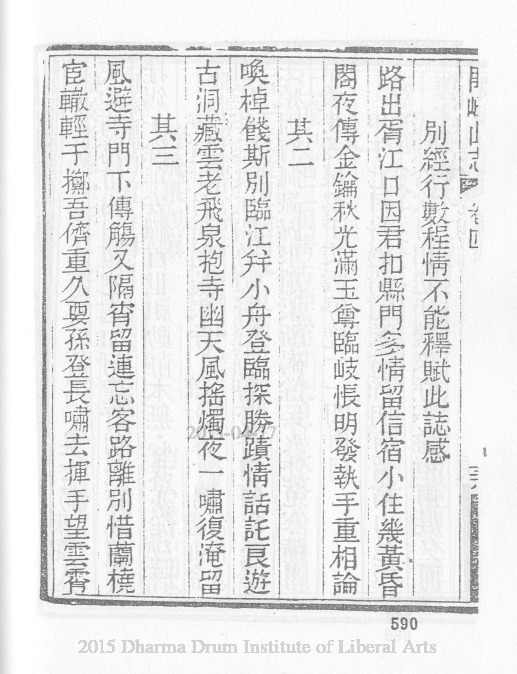 山志 卷四
別經行數程情不能釋賦此誌感
路出胥江口因君扣縣門多情留信宿小住幾黃昏
閣夜傳金鑰秋光滿玉尊臨岐悵明發執手重相論
其二
喚棹餞斯別臨江幷小舟登臨探勝蹟情話託良遊
古洞藏雲老飛泉抱寺幽天風搖燭夜一嘯復淹留
其三
風避寺門下傳觴又隔宵留連忘客路離別惜蘭橈
宦轍輕于擲吾儕重久要孫登長嘯去揮手望雲霄
590
2015 Dharma Drum Institute of Liberal Arts